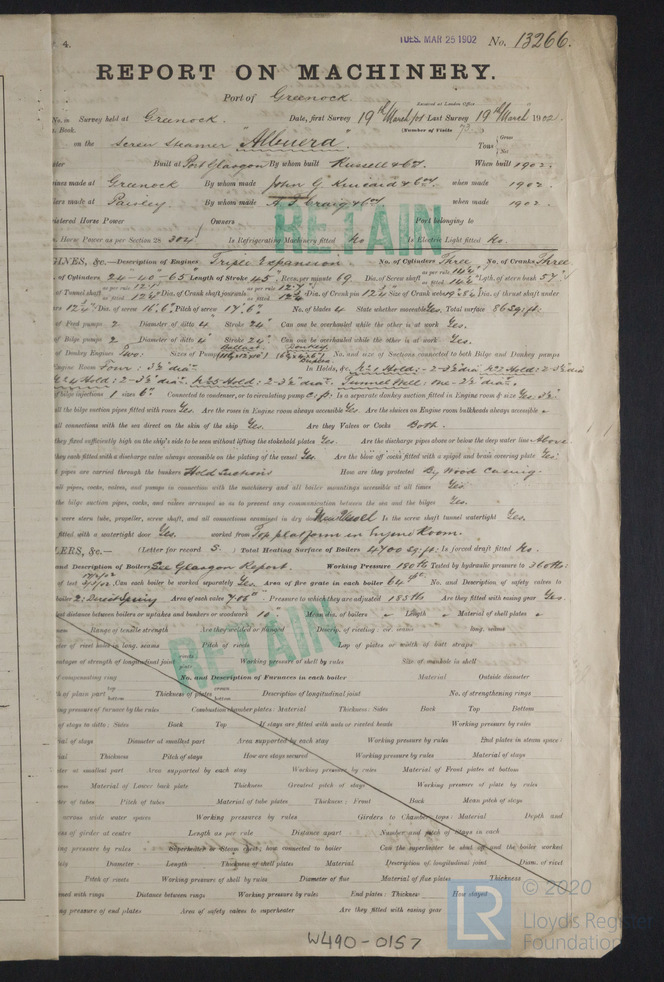 . 4. TUES. MAR 25 1902 No. 13266.
REPORT ON MACHINERY.
Port of Greenock
Received at London Office
No. in Survey held at Greenock. Date, first Survey 19th March Last Survey 19th March 1902
Book. (Number of Visits
on the Screw Steamer "Albuera". Tons Gross Net
Built at Port Glasgow By whom built Russell & Co. When built 1902.
made at Greenock By whom made John G. Kincaid & Co when made 1902.
made at Paisley. By whom made A. F. Craig & Co when made 1902.
Horse Power Owners Port belonging to
Horse Power as per Section 28 304 Is Refrigerating Machinery fitted No Is Electric Light fitted No.
RETAIN
&c.—Description of Engines Triple Expansion No. of Cylinders Three No. of Cranks Three
of Cylinders 24-40-65 Length of Stroke 45" Revs. per minute 69 Dia. of Screw shaft as per rule as fitted Lgth. of stern bush 57"
of Tunnel shaft as per rule as fitted Dia. of Crank shaft journals as per rule 12.7" as fitted Dia. of Crank pin Size of Crank webs Dia. of thrust shaft under
Dia. of screw 16.6" Pitch of screw 17.6" No. of blades 4 State whether moveable Yes. Total surface 86 sq: ft:
of Feed pumps 2 Diameter of ditto 4" Stroke 24" Can one be overhauled while the other is at work Yes.
of Bilge pumps 2 Diameter of ditto 4" Stroke 24" Can one be overhauled while the other is at work Yes.
of Donkey Engines Two: Sizes of Pumps Ballast Donkey Duplex No. and size of Suctions connected to both Bilge and Donkey pumps
Engine Room Four: 3½" dia In Holds, &c. No 1 Hold: 2-3½ dia No 2 Hold: 2-3½ dia
Hold: 2-3½" dia. No 5 Hold: 2-3½" dia. Tunnel Well: One-2½" dia.
of bilge injections 1 sizes 6" Connected to condenser, or to circulating pump C.P. Is a separate donkey suction fitted in Engine room & size Yes 3½"
all the bilge suction pipes fitted with roses Yes. Are the roses in Engine room always accessible Yes. Are the sluices on Engine room bulkheads always accessible
all connections with the sea direct on the skin of the ship Yes. Are they Valves or Cocks Both.
they fixed sufficiently high on the ship's side to be seen without lifting the stokehold plates Yes. Are the discharge pipes above or below the deep water line Above
they each fitted with a discharge valve always accessible on the plating of the vessel Yes. Are the blow off cocks fitted with a spigot and brass covering plate Yes.
pipes are carried through the bunkers Hold Suctions How are they protected By Wood Casing.
all pipes, cocks, valves, and pumps in connection with the machinery and all boiler mountings accessible at all times Yes.
the bilge suction pipes, cocks, and valves arranged so as to prevent any communication between the sea and the bilges Yes.
were stern tube, propeller, screw shaft, and all connections examined in dry dock New Vessel Is the screw shaft tunnel watertight Yes.
fitted with a watertight door Yes. worked from Top platform in Engine Room.
&c.— (Letter for record S. ) Total Heating Surface of Boilers 4700 sq: ft: Is forced draft fitted No.
and Description of Boilers See Glasgow Report. Working Pressure 180 lbs Tested by hydraulic pressure to 360 lbs:
of test Can each boiler be worked separately Yes. Area of fire grate in each boiler 64 No. and Description of safety valves to
boiler 2: Direct Spring Area of each valve 7.06" Pressure to which they are adjusted 185 lbs Are they fitted with easing gear Yes.
distance between boilers or uptakes and bunkers or woodwork 10" Mean dia. of boilers Length Material of shell plates
Range of tensile strength Are they welded or flanged Descrip. of riveting: cir. seams long. seams
of rivet holes in long. seams Pitch of rivets Lap of plates or width of butt straps
RETAIN
of strength of longitudinal joint Working pressure of shell by rules Size of manhole in shell
of compensating ring No. and Description of Furnaces in each boiler Material Outside diameter
of plain part top bottom Thickness of plates crown bottom Description of longitudinal joint No. of strengthening rings
pressure of furnace by the rules Combustion chamber plates: Material Thickness: Sides Back Top Bottom
of stays to ditto: Sides Back Top If stays are fitted with nuts or riveted heads Working pressure by rules
of stays Diameter at smallest part Area supported by each stay Working pressure by rules End plates in steam space:
Thickness Pitch of stays How are stays secured Working pressure by rules Material of stays
at smallest part Area supported by each stay Working pressure by rules Material of Front plates at bottom
Material of Lower back plate Thickness Greatest pitch of stays Working pressure of plate by rules
of tubes Pitch of tubes Material of tube plates Thickness: Front Back Mean pitch of stays
across wide water spaces Working pressures by rules Girders to Chamber tops: Material Depth and
of girder at centre Length as per rule Distance apart Number and pitch of stays in each
pressure by rules Superheater or Steam chest; how connected to boiler Can the superheater be shut off and the boiler worked
Diameter Length Thickness of shell plates Material Description of longitudinal joint Diam. of rivet
Pitch of rivets Working pressure of shell by rules Diameter of flue Material of flue plates Thickness
with rings Distance between rings Working pressure by rules End plates: Thickness How stayed
pressure of end plates Area of safety valves to superheater Are they fitted with easing gear
W490-0157
LR © 2020
Lloyd's Register
Foundation